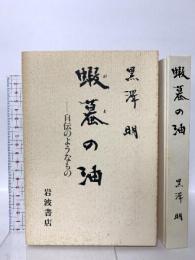 黒澤明
蝦蟇の油
がま
——自伝のようなもの
岩波書店
蝦蟇の油
黒澤明